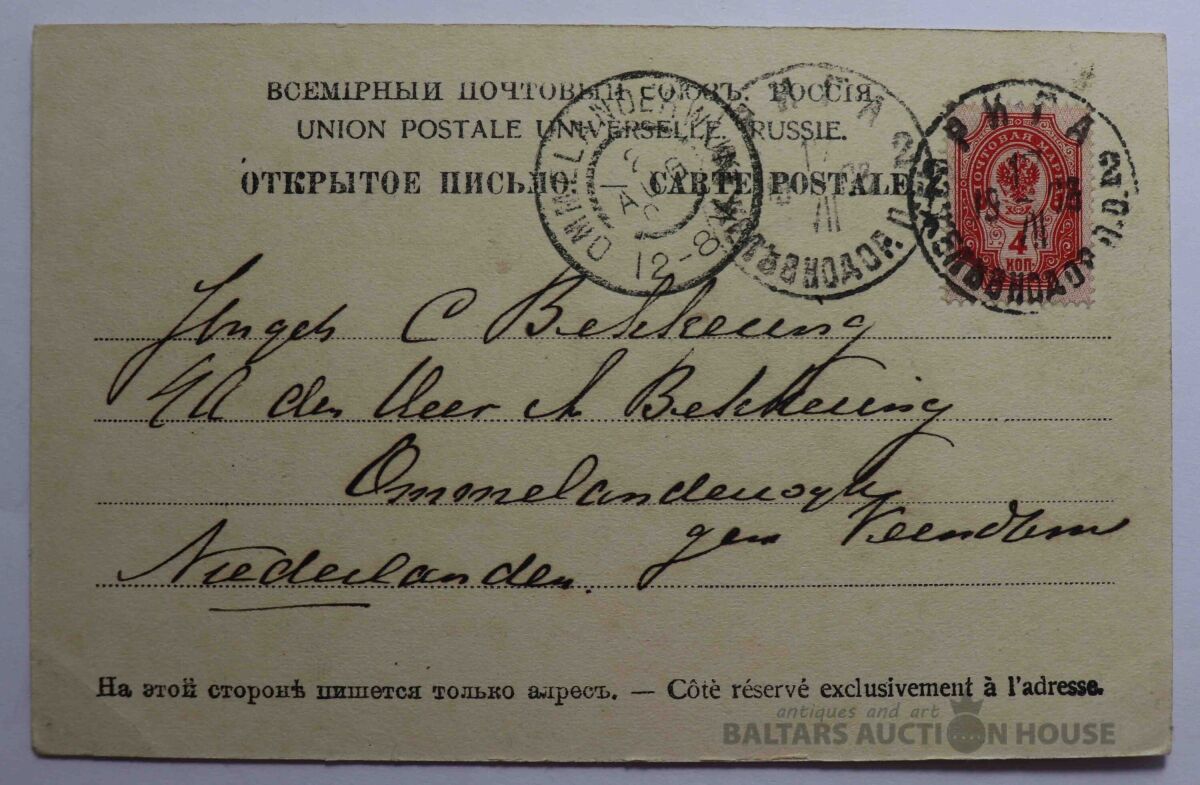 ВСЕМІРНЫЙ ПОЧТОВЫЙ СОЮЗЪ. РОССІЯ.
UNION POSTALE UNIVERSELLE. RUSSIE.
ОТКРЫТОЕ ПИСЬМО. — CARTE POSTALE.
РИГА
2
РИГА
2
ПОЧТОВАЯ МАРКА
4
КОП.
OMMELANDERWIJK
12-8
C Bekkering
den Heer A Bekkering
Ommelanderwyk
gem Veendam
Nederlanden.
На этой сторонѣ пишется только адресъ. — Côté réservé exclusivement à l'adresse.
antiques and art
BALTARS AUCTION HOUSE